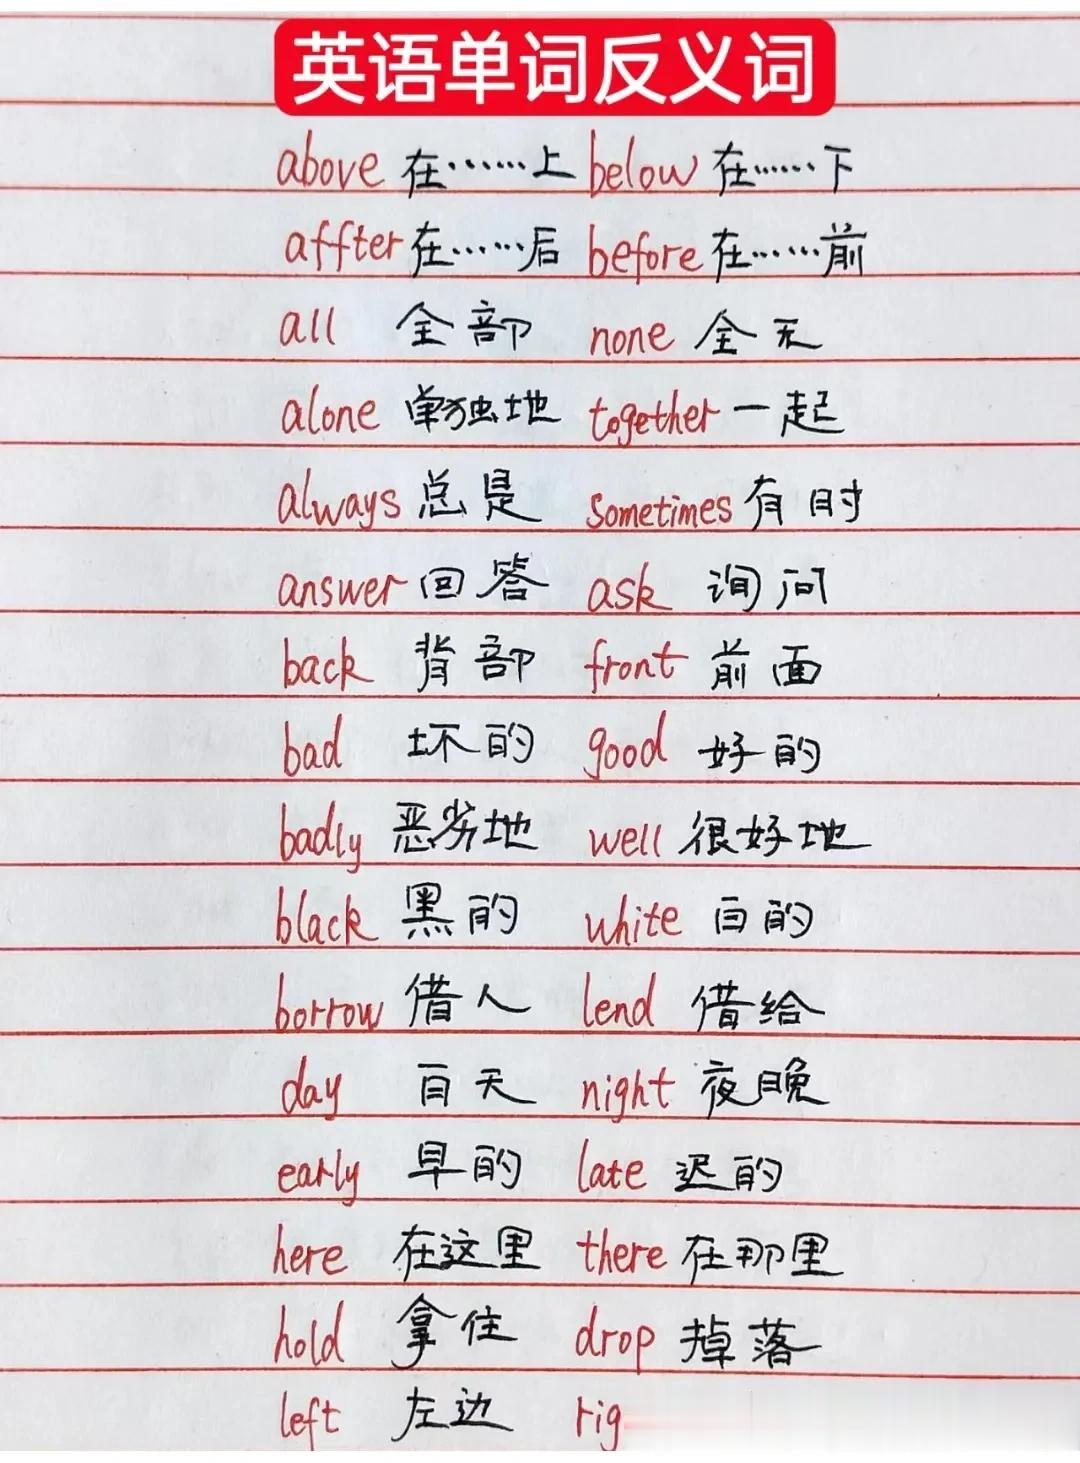 英语单词反义词
above 在……上 below 在……下
affter 在……后 before 在……前
all 全部 none 全无
alone 单独地 together 一起
always 总是 sometimes 有时
answer 回答 ask 询问
back 背部 front 前面
bad 坏的 good 好的
badly 恶劣地 well 很好地
black 黑的 white 白的
borrow 借人 lend 借给
day 白天 night 夜晚
early 早的 late 迟的
here 在这里 there 在那里
hold 拿住 drop 掉落
left 左边 rig